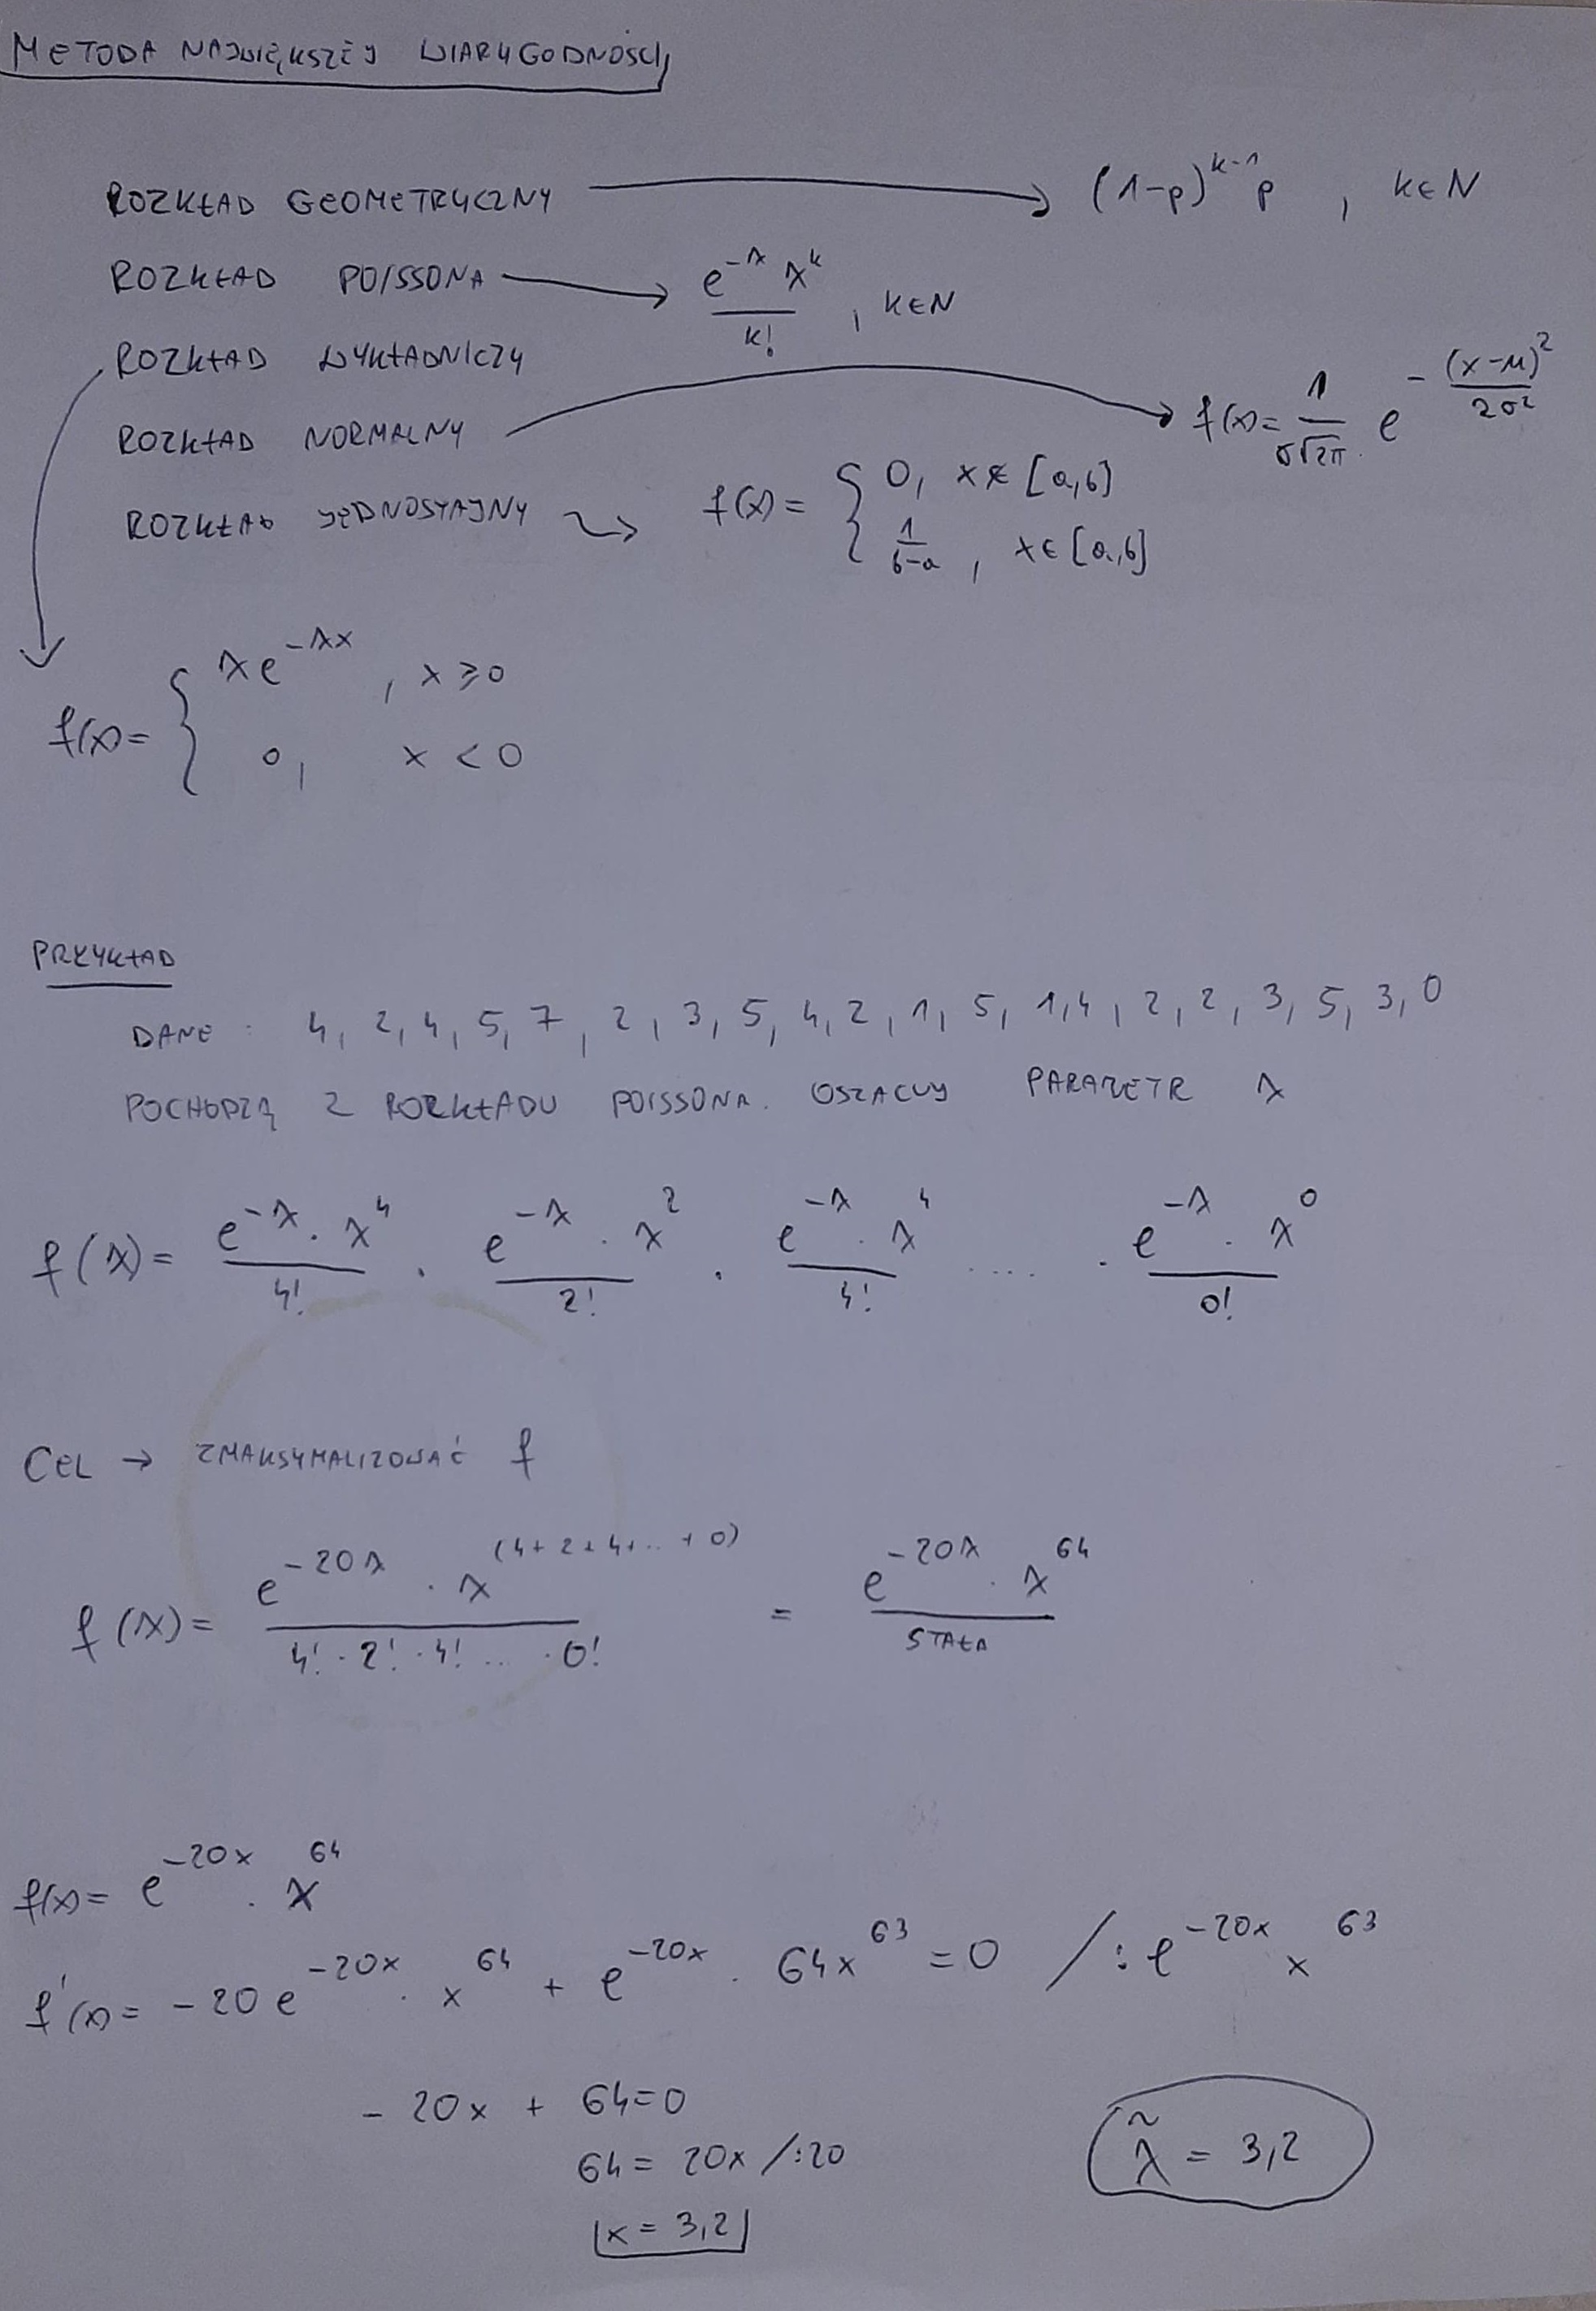 METODA NAJWIĘKSZEJ WIARYGODNOŚCI
ROZKŁAD GEOMETRYCZNY → (1-p)^{k-1} p , k∈N
ROZKŁAD POISSONA → \frac{e^{-λ} λ^k}{k!} , k∈N
ROZKŁAD WYKŁADNICZY
ROZKŁAD NORMALNY → f(x) = \frac{1}{σ\sqrt{2π}} e^{-\frac{(x-μ)^2}{2σ^2}}
ROZKŁAD JEDNOSTAJNY → f(x) = { 0, x∉[a,b]
\frac{1}{b-a} , x∈[a,b]
f(x) = { λe^{-λx} , x ≥ 0
0, x < 0
PRZYKŁAD
DANE : 4, 2, 4, 5, 7, 2, 3, 5, 4, 2, 1, 5, 1, 4, 2, 2, 3, 5, 3, 0
POCHODZĄ Z ROZKŁADU POISSONA. OSZACUJ PARAMETR λ
f(λ) = \frac{e^{-λ} · λ^4}{4!} · \frac{e^{-λ} · λ^2}{2!} · \frac{e^{-λ} · λ^4}{4!} .... · \frac{e^{-λ} · λ^0}{0!}
CEL → ZMAKSYMALIZOWAĆ f
f(λ) = \frac{e^{-20λ} · λ^{(4+2+4+...+0)}}{4! · 2! · 4! ... · 0!} = \frac{e^{-20λ} · λ^{64}}{STAŁA}
f(x) = e^{-20x} · x^{64}
f'(x) = -20e^{-20x} · x^{64} + e^{-20x} · 64x^{63} = 0 /: e^{-20x} x^{63}
-20x + 64 = 0
64 = 20x /:20
x = 3,2
\tilde{λ} = 3,2